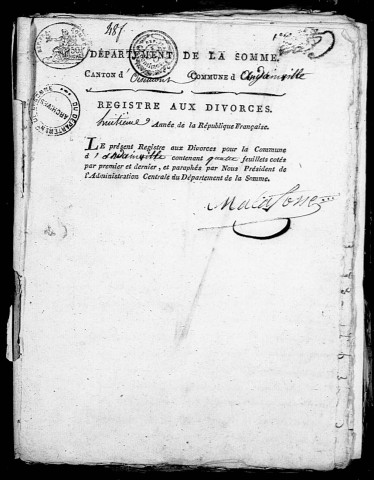 DÉPARTEMENT DE LA SOMME.
CANTON d'Oisemont COMMUNE d'Andainville
REGISTRE AUX DIVORCES.
huitieme Année de la République Française.
LE présent Registre aux Divorces pour la Commune
d'Andainville contenant quatre feuillets cotés
par premier et dernier, et paraphés par Nous Président de
l'Administration Centrale du Département de la Somme.